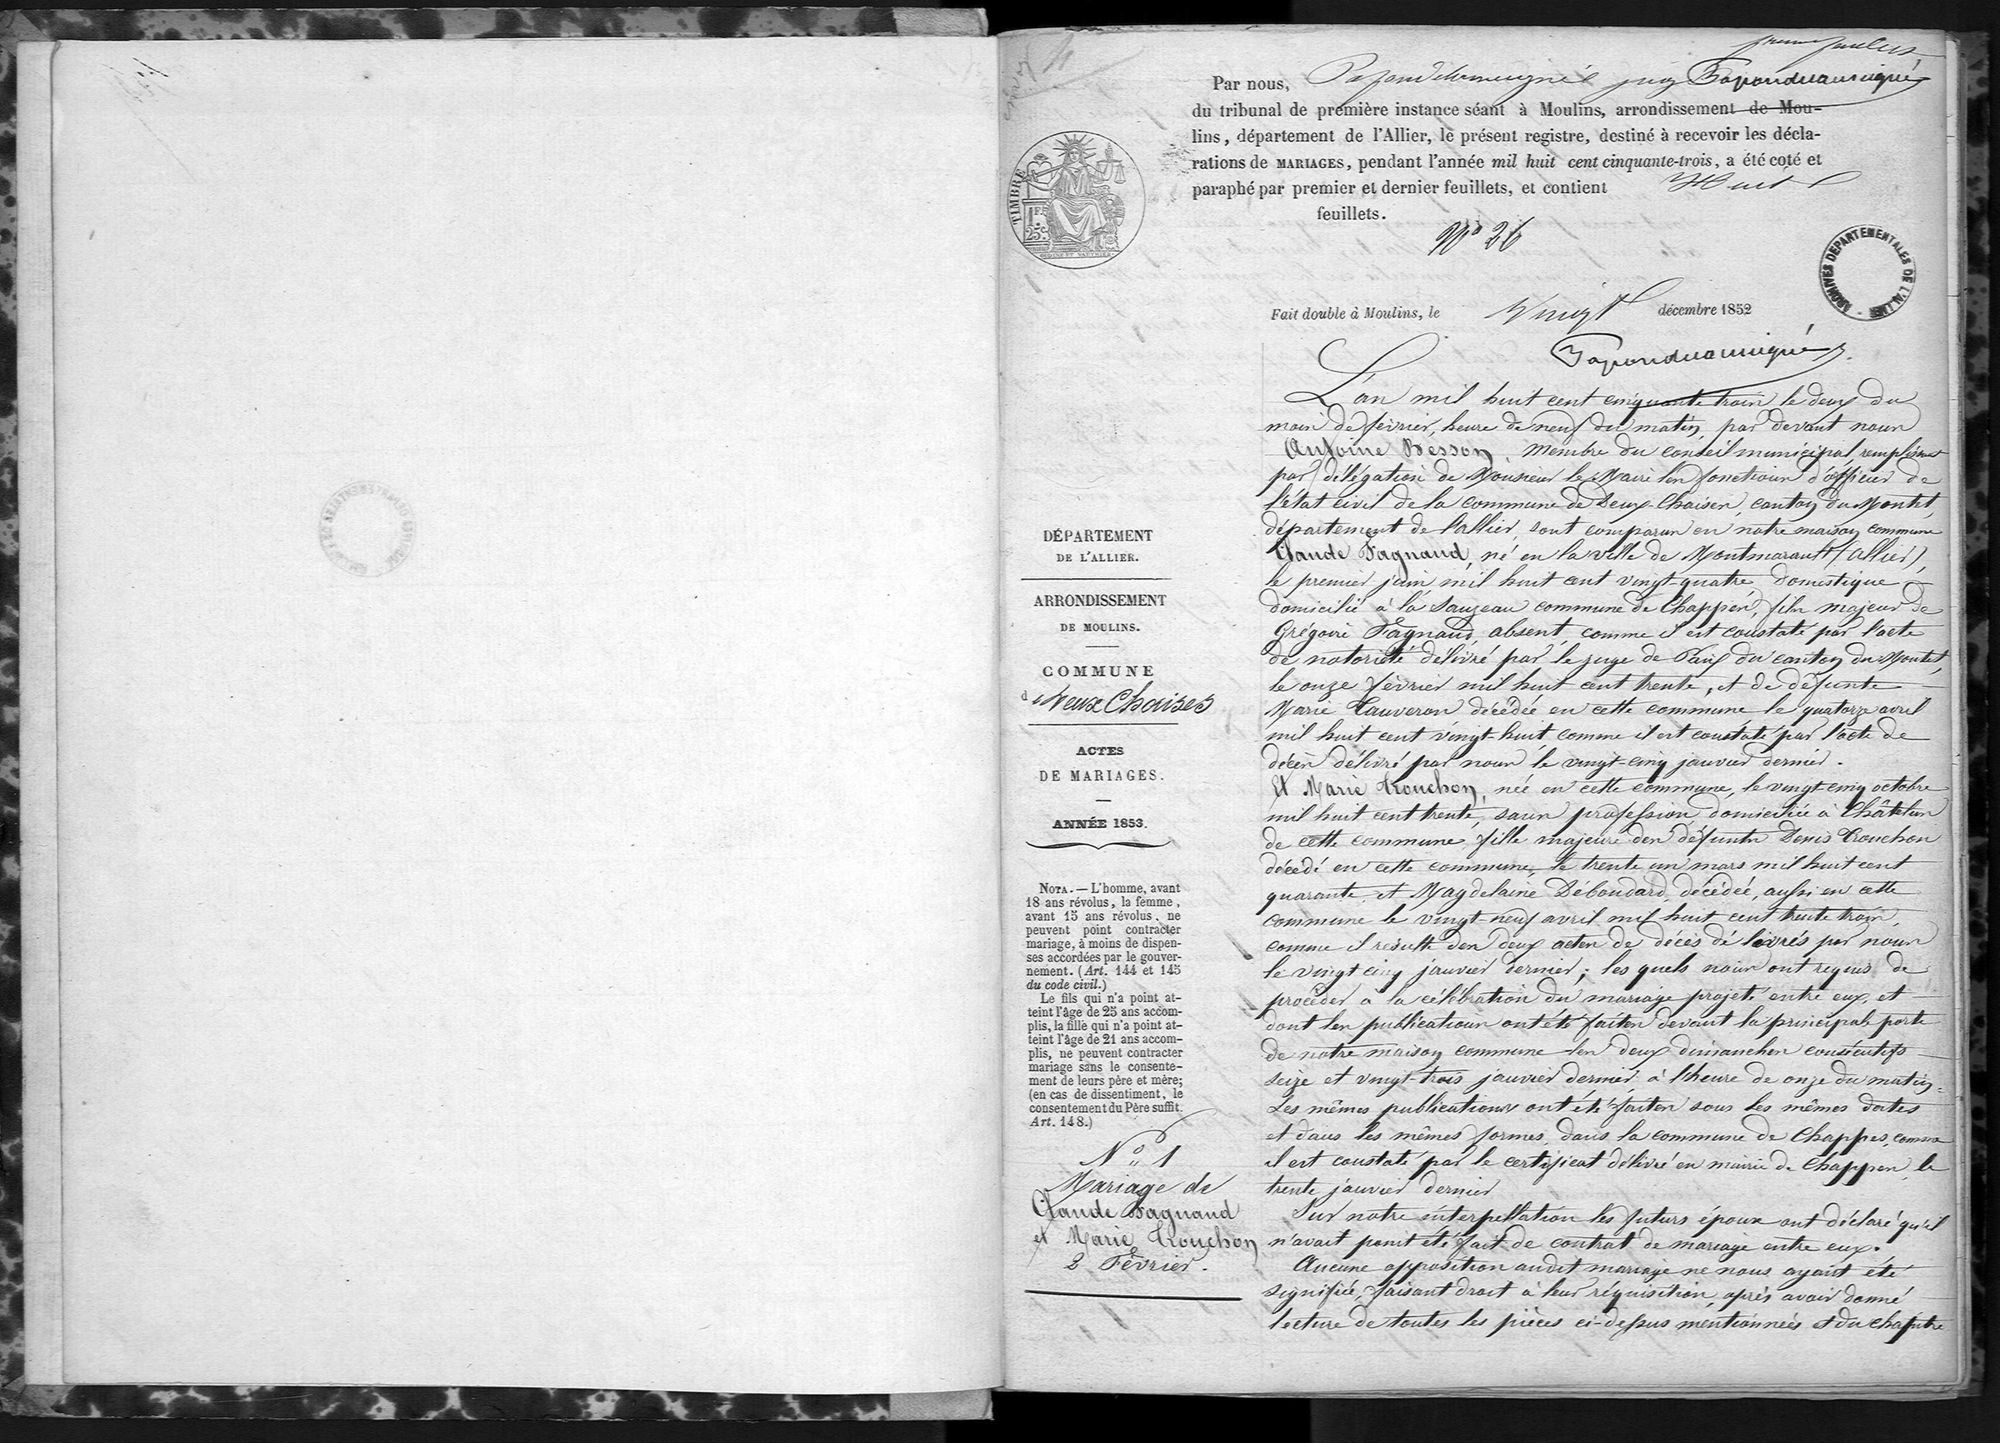 premier feuillet
Par nous, juge
du tribunal de première instance séant à Moulins, arrondissement de Mou-
lins, département de l'Allier, le présent registre, destiné à recevoir les décla-
rations de MARIAGES, pendant l'année mil huit cent cinquante-trois, a été coté et
paraphé par premier et dernier feuillets, et contient Huit
feuillets.
Nº 26
TIMBRE
1F.
25C.
ARCHIVES DÉPARTEMENTALES DE L'ALLIER
Fait double à Moulins, le Vingt décembre 1852
DÉPARTEMENT
DE L'ALLIER.
ARRONDISSEMENT
DE MOULINS.
COMMUNE
de Deux Chaises
ACTES
DE MARIAGES.
ANNÉE 1853.
NOTA. — L'homme, avant
18 ans révolus, la femme,
avant 15 ans révolus, ne
peuvent point contracter
mariage, à moins de dispen-
ses accordées par le gouver-
nement. (Art. 144 et 145
du code civil.)
Le fils qui n'a point at-
teint l'âge de 25 ans accom-
plis, la fille qui n'a point at-
teint l'âge de 21 ans accom-
plis, ne peuvent contracter
mariage sans le consente-
ment de leurs père et mère;
(en cas de dissentiment, le
consentement du Père suffit.
Art. 148.)
Nº 1
Mariage de
Claude Fagnaud
et Marie Trouchon
2 Février.
L'an mil huit cent cinquante trois le deux du
mois de février, heure de neuf du matin, par devant nous
Antoine Besson, membre du conseil municipal, remplissant
par délégation de Monsieur le Maire les fonctions d'officier de
l'état civil de la commune de Deux-Chaises, canton du Montet,
département de l'allier, sont comparus en notre maison commune
Claude Fagnaud, né en la ville de Montmarault (Allier),
le premier juin mil huit cent vingt-quatre, domestique
domicilié à la Sauzeau commune de Chappes, fils majeur de
Grégoire Fagnaud, absent, comme il est constaté par l'acte
de notoriété délivré par le juge de Paix du canton du Montet,
le onze février mil huit cent trente, et de défunte
Marie Tauveron décédée en cette commune le quatorze avril
mil huit cent vingt-huit comme il est constaté par l'acte de
décès délivré par nous le vingt-cinq janvier dernier.
Et Marie Trouchon, née en cette commune, le vingt cinq octobre
mil huit cent trente, sans profession, domiciliée à Châtelus
de cette commune, fille majeure des défunts Denis Trouchon
décédé en cette commune, le trente un mars mil huit cent
quarante, et Magdelaine Déboudard, décédée, aussi en cette
commune le vingt-neuf avril mil huit cent trente trois,
comme il résulte des deux actes de décès délivrés par nous
le vingt cinq janvier dernier; les quels nous ont requis de
procéder à la célébration du mariage projeté entre eux, et
dont les publications ont été faites devant la principale porte
de notre maison commune les deux dimanches consécutifs
seize et vingt-trois janvier dernier, à l'heure de onze du matin.
Les mêmes publications ont été faites sous les mêmes dates
et dans les mêmes formes, dans la commune de Chappes, comme
il est constaté par le certificat délivré en mairie de Chappes, le
trente janvier dernier
Sur notre interpellation les futurs époux ont déclaré qu'il
n'avait point été fait de contrat de mariage entre eux.
Aucune opposition audit mariage ne nous ayant été
signifiée, faisant droit à leur réquisition, après avoir donné
lecture de toutes les pièces ci-dessus mentionnées et du chapitre